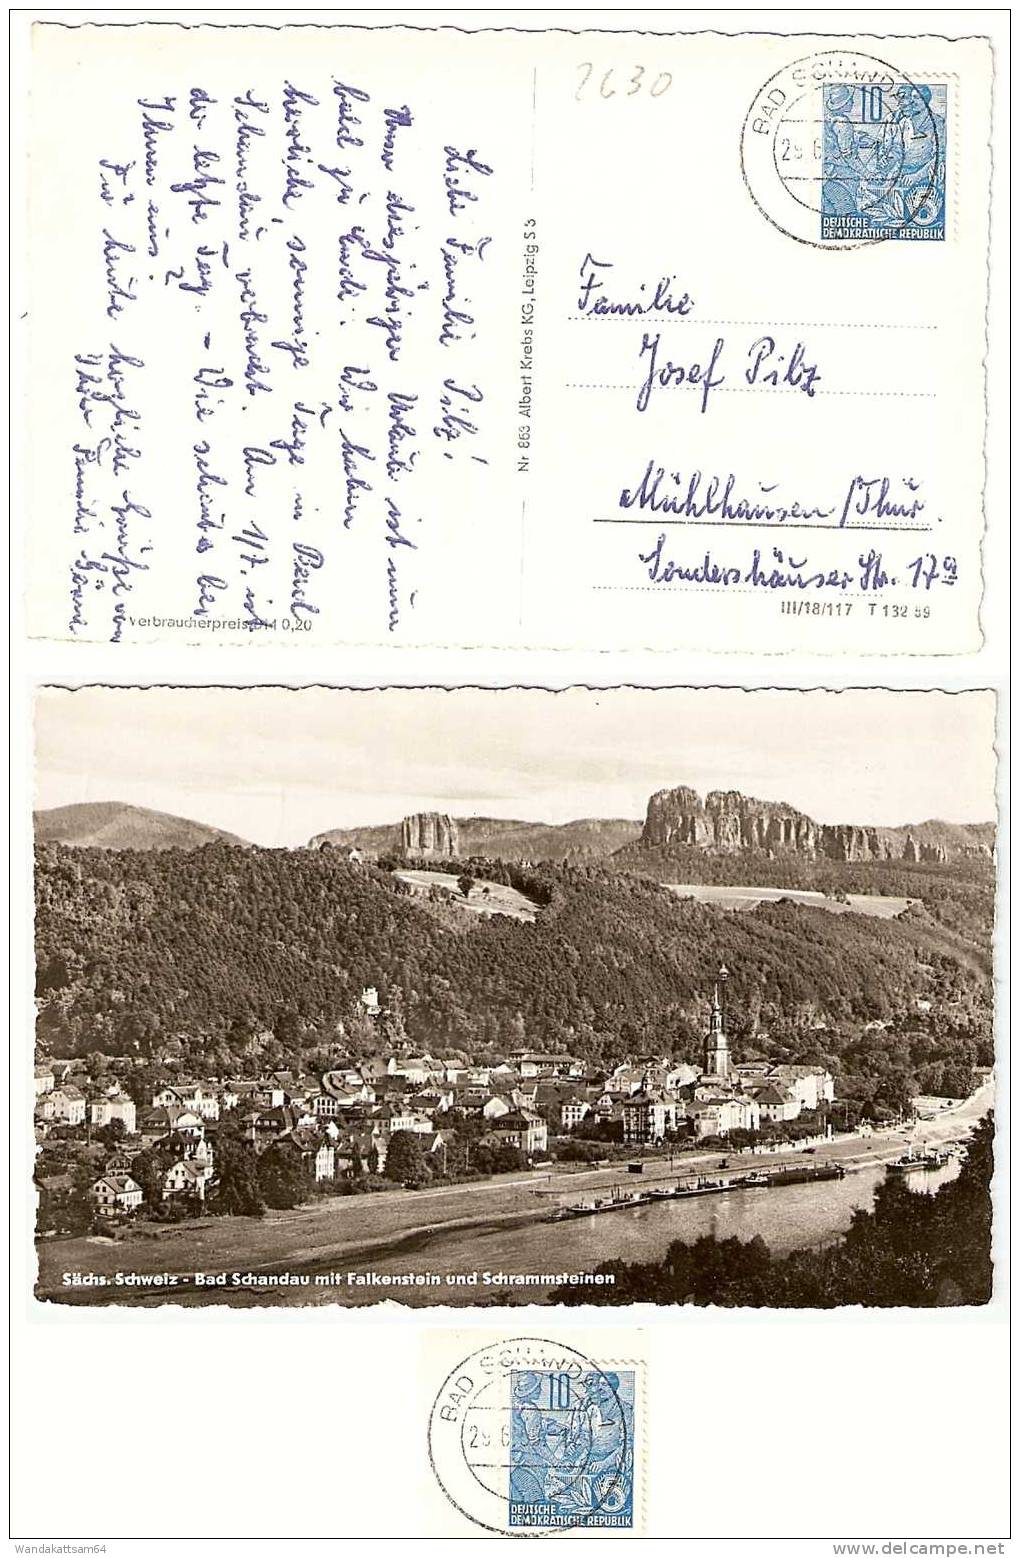 2630
BAD SCHANDAU 1
29.6.
10
DEUTSCHE
DEMOKRATISCHE REPUBLIK
Liebe Familie Pilz!
Unser diesjähriger Urlaub ist nun
bald zu Ende. Wir haben
herrliche, sonnige Tage in Bad
Schandau verbracht. Am 1/7. ist
der letzte Tag. – Wie schaut es bei
Ihnen aus?
Für heute herzliche Grüße von
Ihrer Familie
Nr 863 Albert Krebs KG, Leipzig S 3
Familie
Josef Pilz
Mühlhausen/Thür.
Sonderhäuser Str. 17a
III/18/117 T 132 59
Verbraucherpreis 0,20
Sächs. Schweiz - Bad Schandau mit Falkenstein und Schrammsteinen
BAD SCHANDAU 1
29.6.
10
DEUTSCHE
DEMOKRATISCHE REPUBLIK
Wandakattsam64
delcampe.net